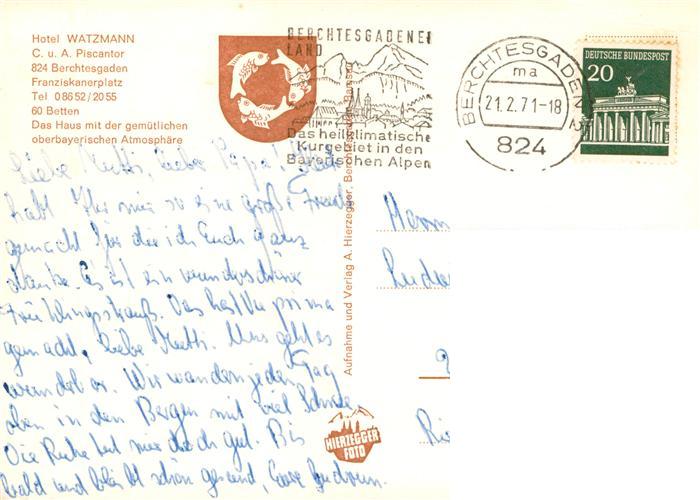 Hotel WATZMANN
C. u. A. Piscantor
824 Berchtesgaden
Franziskanerplatz
Tel 0 86 52 / 20 55
60 Betten
Das Haus mit der gemütlichen
oberbayerischen Atmosphäre
BERCHTESGADENER
LAND
Das heilklimatische
Kurgebiet in den
Bayerischen Alpen
BERCHTESGADEN
ma
21.2.71-18
824
DEUTSCHE BUNDESPOST
20
Liebe Mutti, lieber Papa!
habt Ihr mir so eine große Freude
gemacht für die ich Euch ganz
danke. Es ist ein wunderschöner
Frühlingsstrauß. Das hast Du prima
gemacht, liebe Mutti. Uns geht es
wunderbar. Wir wandern jeden Tag
oben in den Bergen mit viel Schnee.
Die Ruhe tut mir doch gut. Bis
bald und bleibt schön gesund, Eure Gudrun.
Aufnahme und Verlag A. Hierzegger, Berchtesgaden
HIERZEGGER
FOTO